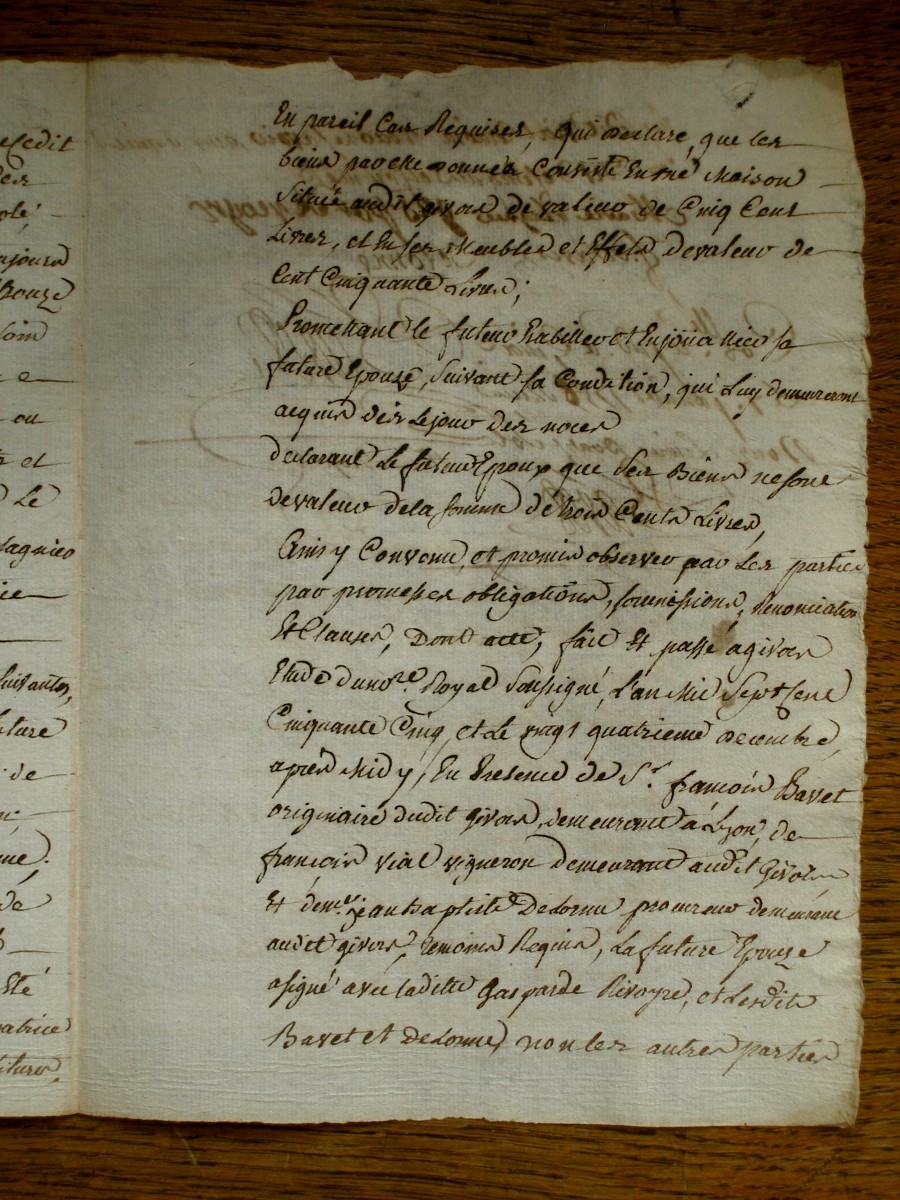 Cedit
der
olé
ujours
Bouze
soin
e
ou
et
Le
agnieu
ie
suivantes,
uture
de
me.
de
Eté
atrice
itures,
En pareil Cas Requises, qui declare, que les
biens par elle donnés Consiste En une Maison
Située audit givors de valeur de Cinq Cent
Livres, et En ses Meubles et Effets de valeur de
Cent Cinquante Livres;
Promettant le futeur habiller et Enjoüailler sa
future Epouze, Suivant sa Condition, qui Luy demeureront
acquis dès Le jour des noces
declarant Le futeur Epoux que Ses Biens ne sont
de valeur de la somme de trois Cents Livres,
Ainsy Convenu, et promis observer par Les parties
par promesses obligations, soumissions, Renonciation
Et Clauses, Dont acte, fait Et passé a givors
Etude du no.re Royal Soussigné, L'an Mil Sept Cent
Cinquante Cinq, et Le vingt quatrieme decembre,
après Midy, En Presence de S.r françois Bavet
originaire dudit givors, demeurant à Lyon, de
françois vial vigneron demeurant audit Givors
Et de M.e jean baptiste Delorme procureur demeurant
audit givors, temoins Requis, La future Epouze
a signé avec laditte Gasparde Rivoyre, et Lesdits
Bavet et Delorme, non les autres parties